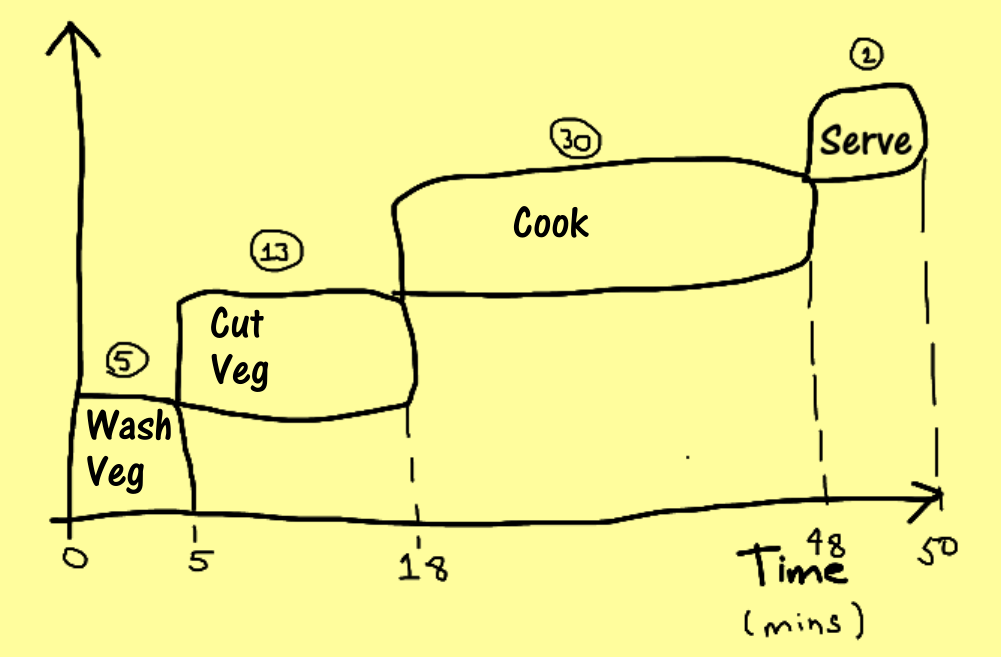 2
Serve
30
Cook
13
Cut
Veg
5
Wash
Veg
0 5 18 48 50
Time
(mins)